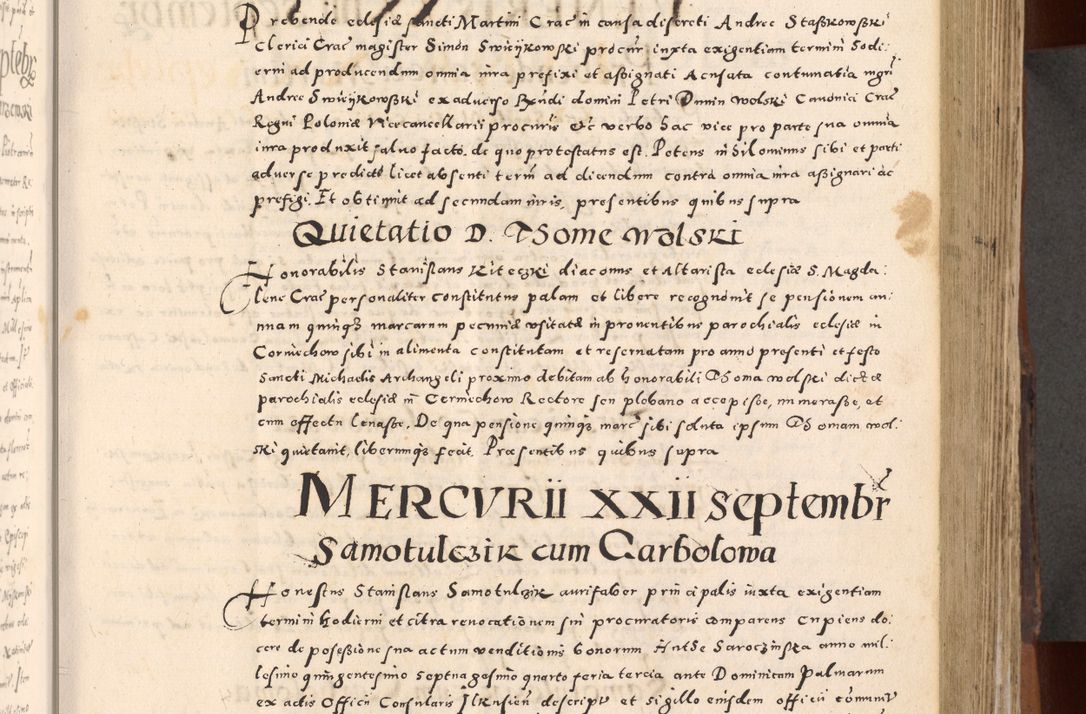 Prebende eclesiæ sancti Martini Crac in causa discreti Andree Staßkowski
Clerici Crac magister Simon Swieijkowski procur iuxta exigentiam termini hodi:
erni ad producendum omnia iura prefixi et aßignati Acusata contumatia mgri
Andree Swieijkowßki ex adverso Rxndi domini Petri Dunin Wolski Canonici Crac
Regni Poloniæ Vicecancellarii procuris etc verbo hac vice pro parte sua omnia
iura produxit salvo facto. de quo protestatus est. Petens nihilominus sibi et parti
adverse predictæ licet absenti term ad dicendum contra omnia iura aßignari ac
prefigi. Et obtinuit ad secundam iuris, presentibus quibus supra
Quietatio D. Thome Wolski
Honorabilis Stanislaus Kiteczki diaconus et Altarista eclesiæ S. Magda:
lene Crac personaliter constitutus palam et libere recognovit se pensionem an:
nuam quinqz marcarum pecuniæ usitatæ in proventibus parochialis eclesiæ in
Corniechow sibi in alimenta constitutam et reservatam pro anno presenti et festo
Sancti Michaelis Archangeli proximo debitam ab honorabili Thoma Wolski dictæ
parochialis eclesiæ in Cerniechow Rectore seu plebano accepisse, numerasse, et
cum effectu levasse. De qua pensione quinqz marc sibi soluta ipsum Thomam Wol:
ski quietavit, liberumqz fecit. Præsentibus quibus supra
MERCVRII XXII Septembr
Samotulczik cum Garbolowa
Honestus Stanislaus Samotulczik aurifaber principalis iuxta exigentiam
termini hodierni et citra revocationem sui procuratoris comparens Cupiens do:
cere de poseßione sua actum venditionis bonorum Annæ Saroczinska anno mil:
lesimo quingentesimo septuagesimo quarto feria tercia ante Dominicam Palmarum
ex actis Officii Consularis Ilkusien descript et sigillo eiusdem officii communit